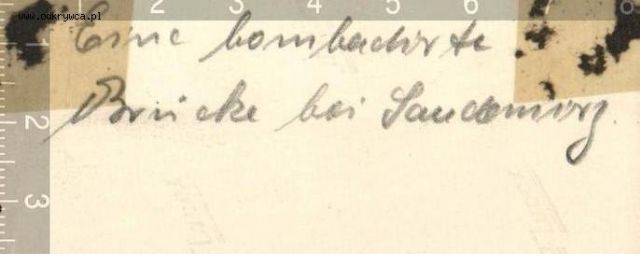 www.odkrywca.pl
2 3 4 5 6 7 8
Eine bombadirte
Brücke bei Sandomirz.
1
2
3